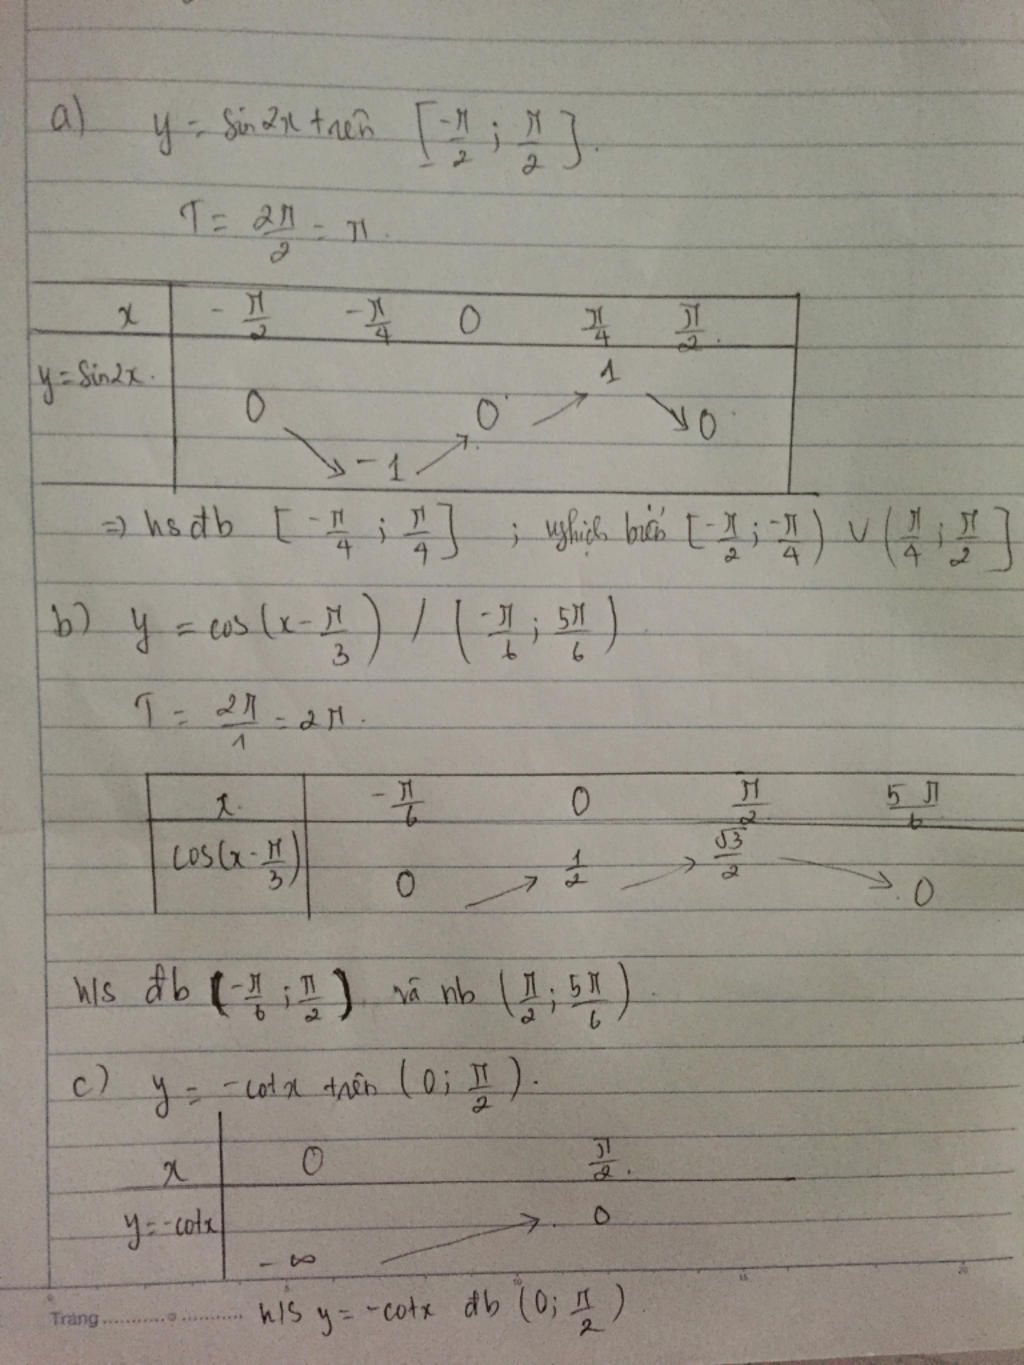 a) y = sin2x trên [-π/2 ; π/2].
T = 2π/2 = π.
x -π/2 -π/4 0 π/4 π/2.
y = sin2x. 0 ↘ -1 ↗ 0 ↗ 1 ↘ 0
=> hs đb [-π/4 ; π/4] ; nghịch biến [-π/2 ; -π/4) ∨ (π/4 ; π/2]
b) y = cos(x - π/3) / (-π/6 ; 5π/6)
T = 2π/1 = 2π.
x. -π/6 0 π/2 5π/6
cos(x - π/3) 0 ↗ 1/2 ↗ √3/2 ↘ 0
h/s đb (-π/6 ; π/2) và nb (π/2 ; 5π/6).
c) y = -cotx trên (0 ; π/2).
x 0 π/2.
y = -cotx -∞ ↗ 0
5 10 15 20
Trang
h/s y = -cotx đb (0 ; π/2)